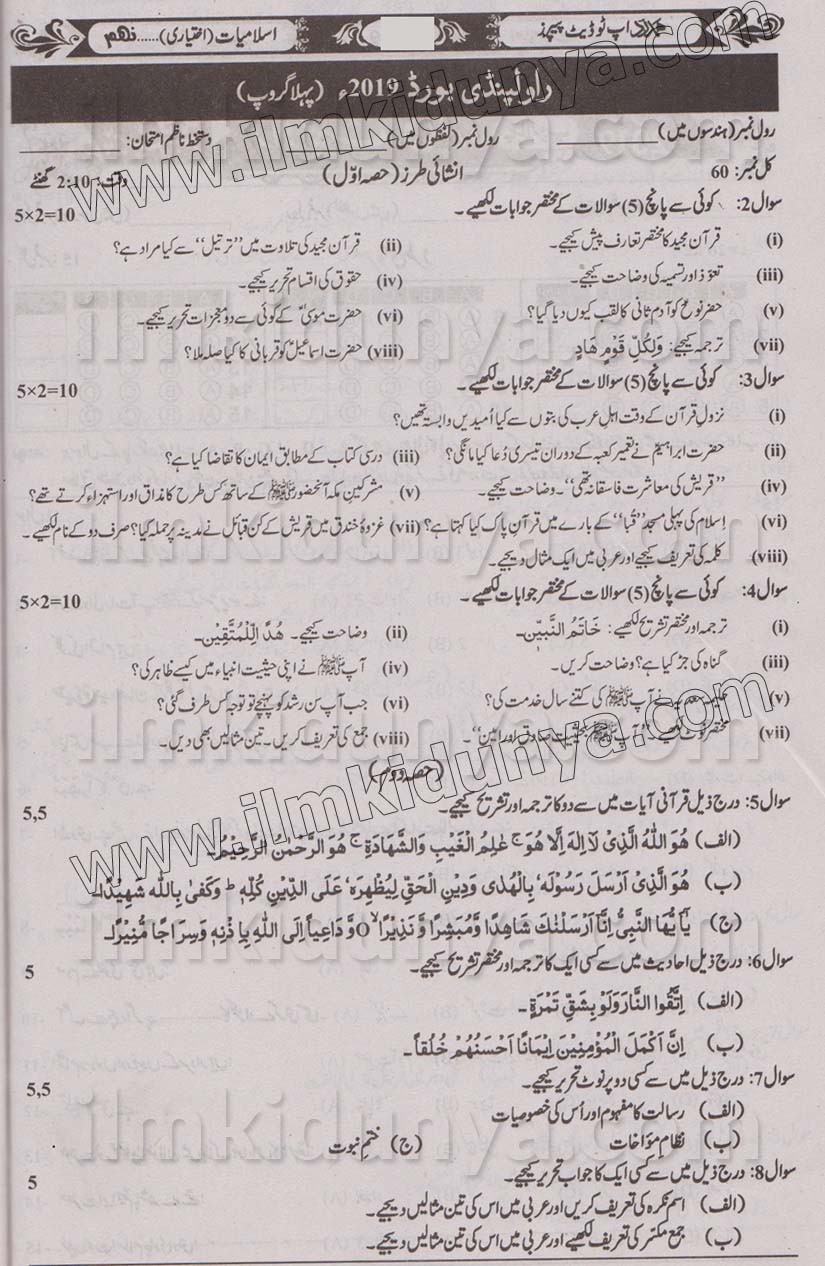 اپ ٹو ڈیٹ پیپرز
اسلامیات (اختیاری)......نہم
راولپنڈی بورڈ 2019ء (پہلا گروپ)
رول نمبر (ہندسوں میں) رول نمبر (لفظوں میں) دستخط ناظم امتحان:
کل نمبر: 60 انشائی طرز (حصہ اوّل) وقت: 2:10 گھنٹے
سوال 2: کوئی سے پانچ (5) سوالات کے مختصر جوابات لکھیے۔ 5×2=10
(i) قرآن مجید کا مختصر تعارف پیش کیجیے۔ (ii) قرآن مجید کی تلاوت میں "ترتیل" سے کیا مراد ہے؟
(iii) تعوّذ اور تسمیہ کی وضاحت کیجیے۔ (iv) حقوق کی اقسام تحریر کیجیے۔
(v) حضر نوحؑ کو آدم ثانی کا لقب کیوں دیا گیا؟ (vi) حضرت موسیٰؑ کے کوئی سے دو معجزات تحریر کیجیے۔
(vii) ترجمہ کیجیے: وَلِكُلِّ قَوْمٍ هَادٍ (viii) حضرت اسماعیلؑ کو قربانی کا کیا صلہ ملا؟
سوال 3: کوئی سے پانچ (5) سوالات کے مختصر جوابات لکھیے۔ 5×2=10
(i) نزولِ قرآن کے وقت اہلِ عرب کی بتوں سے کیا اُمیدیں وابستہ تھیں؟
(ii) حضرت ابراہیمؑ نے تعمیر کعبہ کے دوران تیسری دُعا کیا مانگی؟ (iii) درسی کتاب کے مطابق ایمان کا تقاضا کیا ہے؟
(iv) "قریش کی معاشرت فاسقانہ تھی"۔ وضاحت کیجیے۔ (v) مشرکینِ مکہ آنحضورﷺ کے ساتھ کس طرح کا مذاق اور استہزاء کرتے تھے؟
(vi) اِسلام کی پہلی مسجد "قُبا" کے بارے میں قرآنِ پاک کیا کہتا ہے؟ (vii) غزوۂ خندق میں قریش کے کن قبائل نے مدینہ پر حملہ کیا؟ صرف دو کے نام لکھیے۔
(viii) کلمہ کی تعریف کیجیے اور عربی میں ایک مثال دیجیے۔
سوال 4: کوئی سے پانچ (5) سوالات کے مختصر جوابات لکھیے۔ 5×2=10
(i) ترجمہ اور مختصر تشریح لکھیے: خَاتَمُ النَّبِيّٖن۔ (ii) وضاحت کیجیے۔ هُدًا لِّلْمُتَّقِيْنَ۔
(iii) گناہ کی جڑ کیا ہے؟ وضاحت کریں۔ (iv) آپﷺ نے اپنی حیثیت انبیاء میں کیسے ظاہر کی؟
(v) نے آپﷺ کی کتنے سال خدمت کی؟ (vi) جب آپ سن رشد کو پہنچے تو توجہ کس طرف گئی؟
(vii) مختصر نوٹ لکھیے۔ "آپﷺ بحیثیت صادق اور امین"۔ (viii) جمع کی تعریف کریں۔ تین مثالیں بھی دیں۔
(حصہ دوم)
سوال 5: درج ذیل قرآنی آیات میں سے دو کا ترجمہ اور تشریح کیجیے۔ 5,5
(الف) هُوَ اللّٰهُ الَّذِیْ لَآ اِلٰهَ اِلَّا هُوَ ج عٰلِمُ الْغَيْبِ وَالشَّهَادَةِ ج هُوَ الرَّحْمٰنُ الرَّحِيْمُ۔
(ب) هُوَ الَّذِیْ اَرْسَلَ رَسُوْلَهٗ بِالْهُدٰی وَدِيْنِ الْحَقِّ لِيُظْهِرَهٗ عَلَى الدِّيْنِ كُلِّهٖ ط وَكَفٰی بِاللّٰهِ شَهِيْدًا۔
(ج) يٰٓاَيُّهَا النَّبِیُّ اِنَّآ اَرْسَلْنٰكَ شَاهِدًا وَّمُبَشِّرًا وَّ نَذِيْرًا O وَّدَاعِياً اِلَی اللّٰهِ بِاِذْنِهٖ وَسِرَاجًا مُّنِيْرًا۔
سوال 6: درج ذیل احادیث میں سے کسی ایک کا ترجمہ اور مختصر تشریح کیجیے۔ 5
(الف) اِتَّقُوا النَّارَ وَلَوْ بِشَقِّ تَمْرَةٍ۔
(ب) اِنَّ اَكْمَلَ الْمُؤْمِنِيْنَ اِيْمَانًا اَحْسَنُهُمْ خُلُقاً۔
سوال 7: درج ذیل میں سے کسی دو پر نوٹ تحریر کیجیے۔ 5,5
(الف) رسالت کا مفہوم اور اُس کی خصوصیات
(ب) نظامِ مؤاخات (ج) ختمِ نبوت
سوال 8: درج ذیل میں سے کسی ایک کا جواب تحریر کیجیے۔ 5
(الف) اسم نکرہ کی تعریف کریں اور عربی میں اس کی تین مثالیں دیجیے۔
(ب) جمع مکسّر کی تعریف لکھیے اور عربی میں اس کی تین مثالیں دیجیے۔
www.ilmkidunya.com
www.ilmkidunya.com
ilmkidunya.com
ilmkidunya.com
ilmkidunya.com
ilmkidunya.com
ilmkidunya.com
ilmkidunya.com